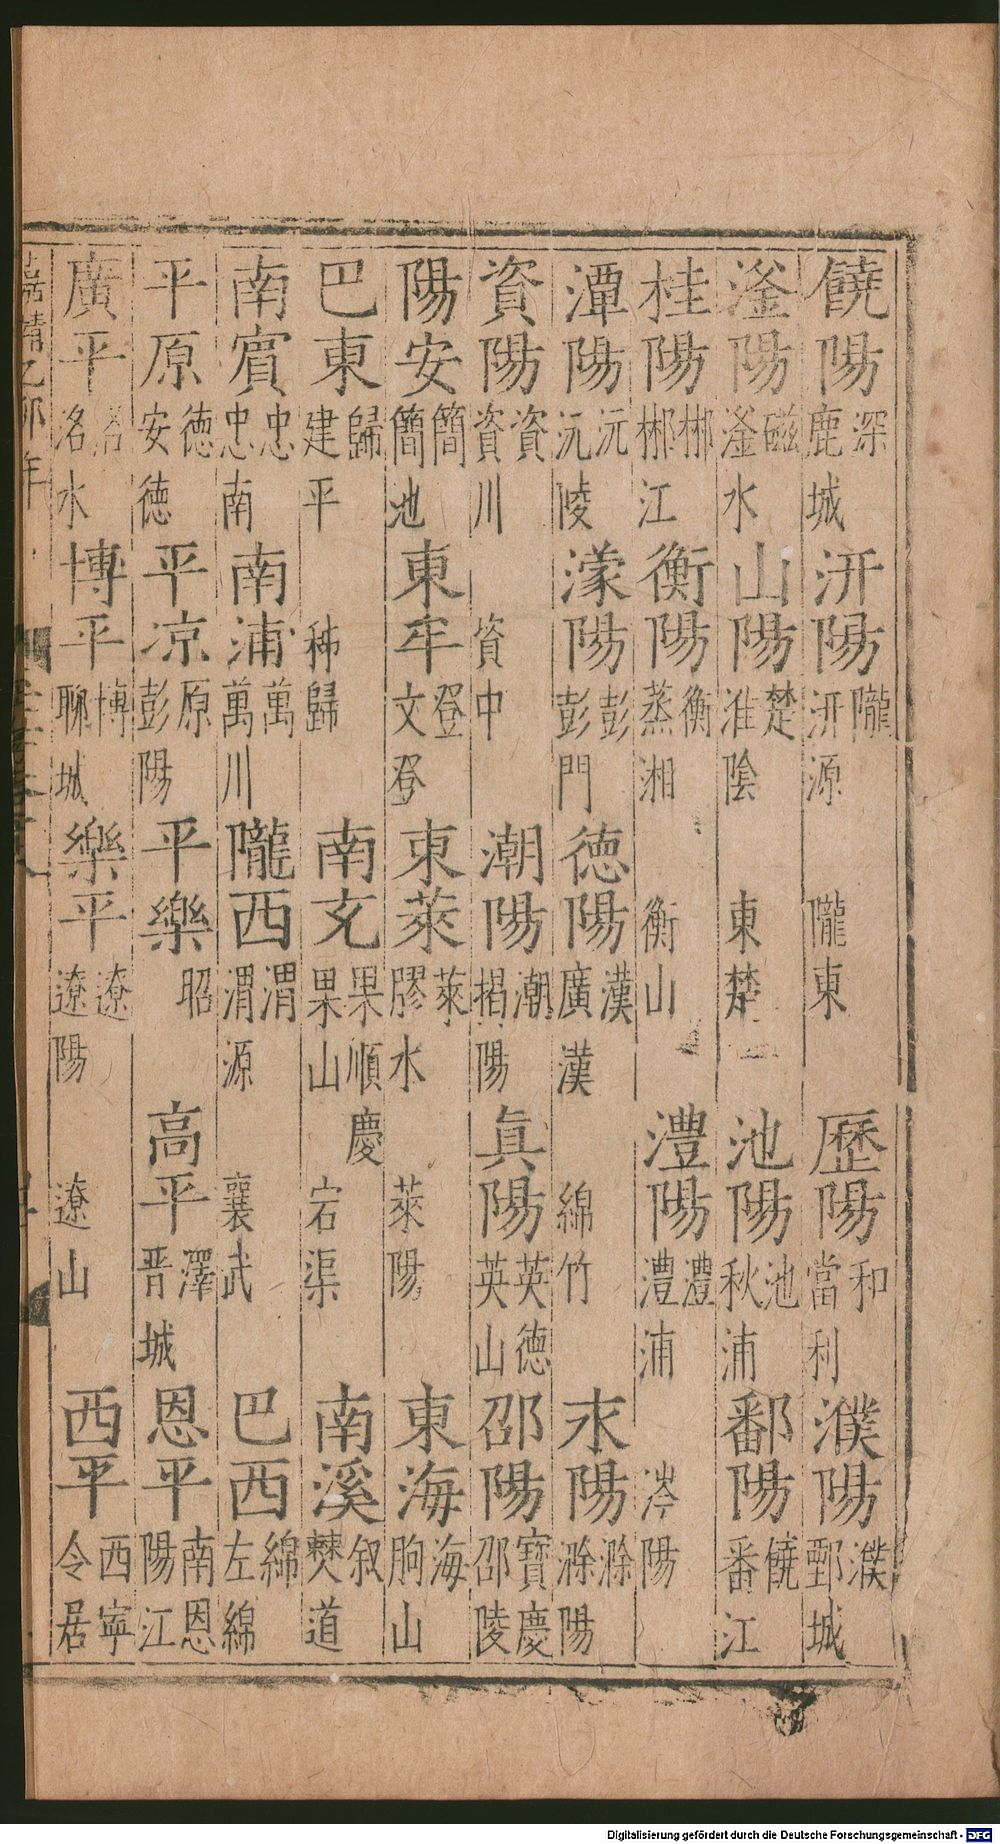 饒陽深鹿城 汧陽隴汧源 隴東 歷陽和當利 濮陽濮鄄城
滏陽磁滏水 山陽楚淮陰 東楚 池陽池秋浦 鄱陽饒番江
桂陽郴郴江 衡陽衡蒸湘 衡山 澧陽澧澧浦 涔陽
潭陽沅沅陵 濛陽彭彭門 德陽漢廣漢 綿竹 永陽滁滁陽
資陽資資川 資中 潮陽潮揭陽 眞陽英德英山 邵陽寶慶邵陵
陽安簡簡池 東牟登文登 東萊萊膠水 萊陽 東海海朐山
巴東歸建平 秭歸 南充果順慶果山 宕渠 南溪叙僰道
南賓忠忠南 南浦萬萬川 隴西渭渭源 襄武 巴西綿左綿
平原德安德 平凉原彭陽 平樂昭 高平澤晋城 恩平南恩陽江
廣平洺洺水 博平博聊城 樂平遼遼陽 遼山 西平西寧令居
嘉靖乙卯年
Digitalisierung gefördert durch die Deutsche Forschungsgemeinschaft - DFG